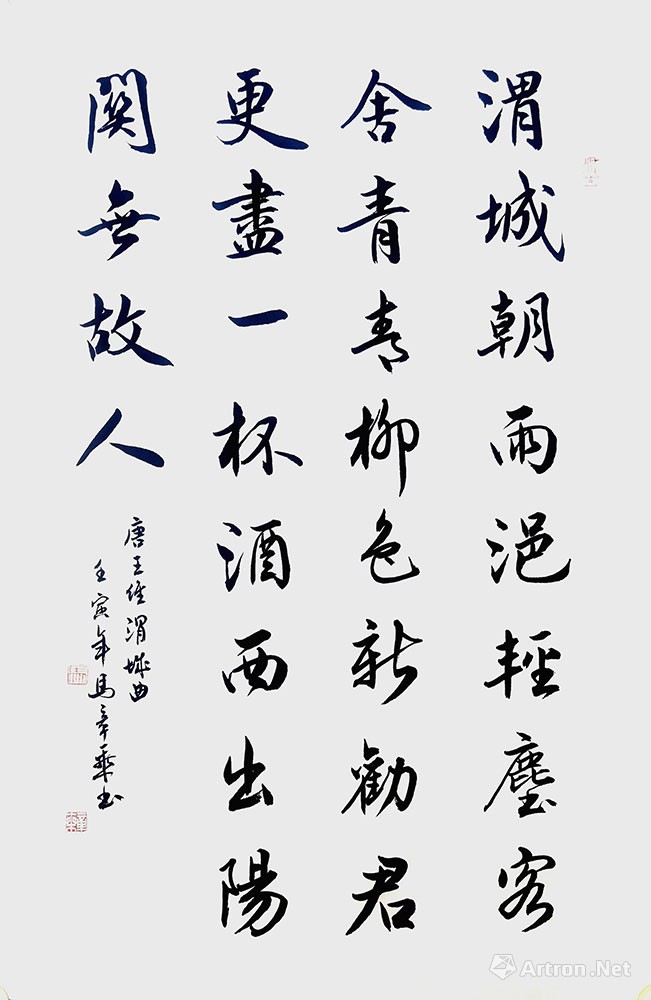 渭城朝雨浥輕塵客
舍青青柳色新勸君
更盡一杯酒西出陽
關無故人
唐王維渭城曲
壬寅年馬章书
Artron.Net